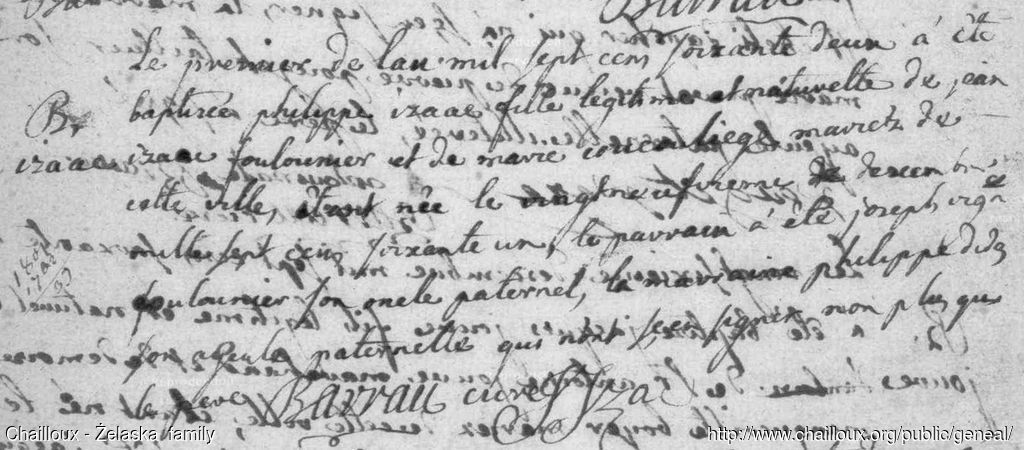 Barrau
Le premier de lan mil sept cens soixante deux à été
baptizée philippe izaac fille légitime et naturelle de jean
B.
izaac izaac foulounier et de marie liege mariez de
cette ville, étant née le vingt neufvieme de decembre
mille sept cens soixante un, le parrain à été joseph
foulounier son oncle paternel, la marraine philippe
son ayeule paternelle qui n'ont sceu signer non plus que
le pere Barrau curé
Chailloux - Żelaska family
http://www.chailloux.org/public/geneal/